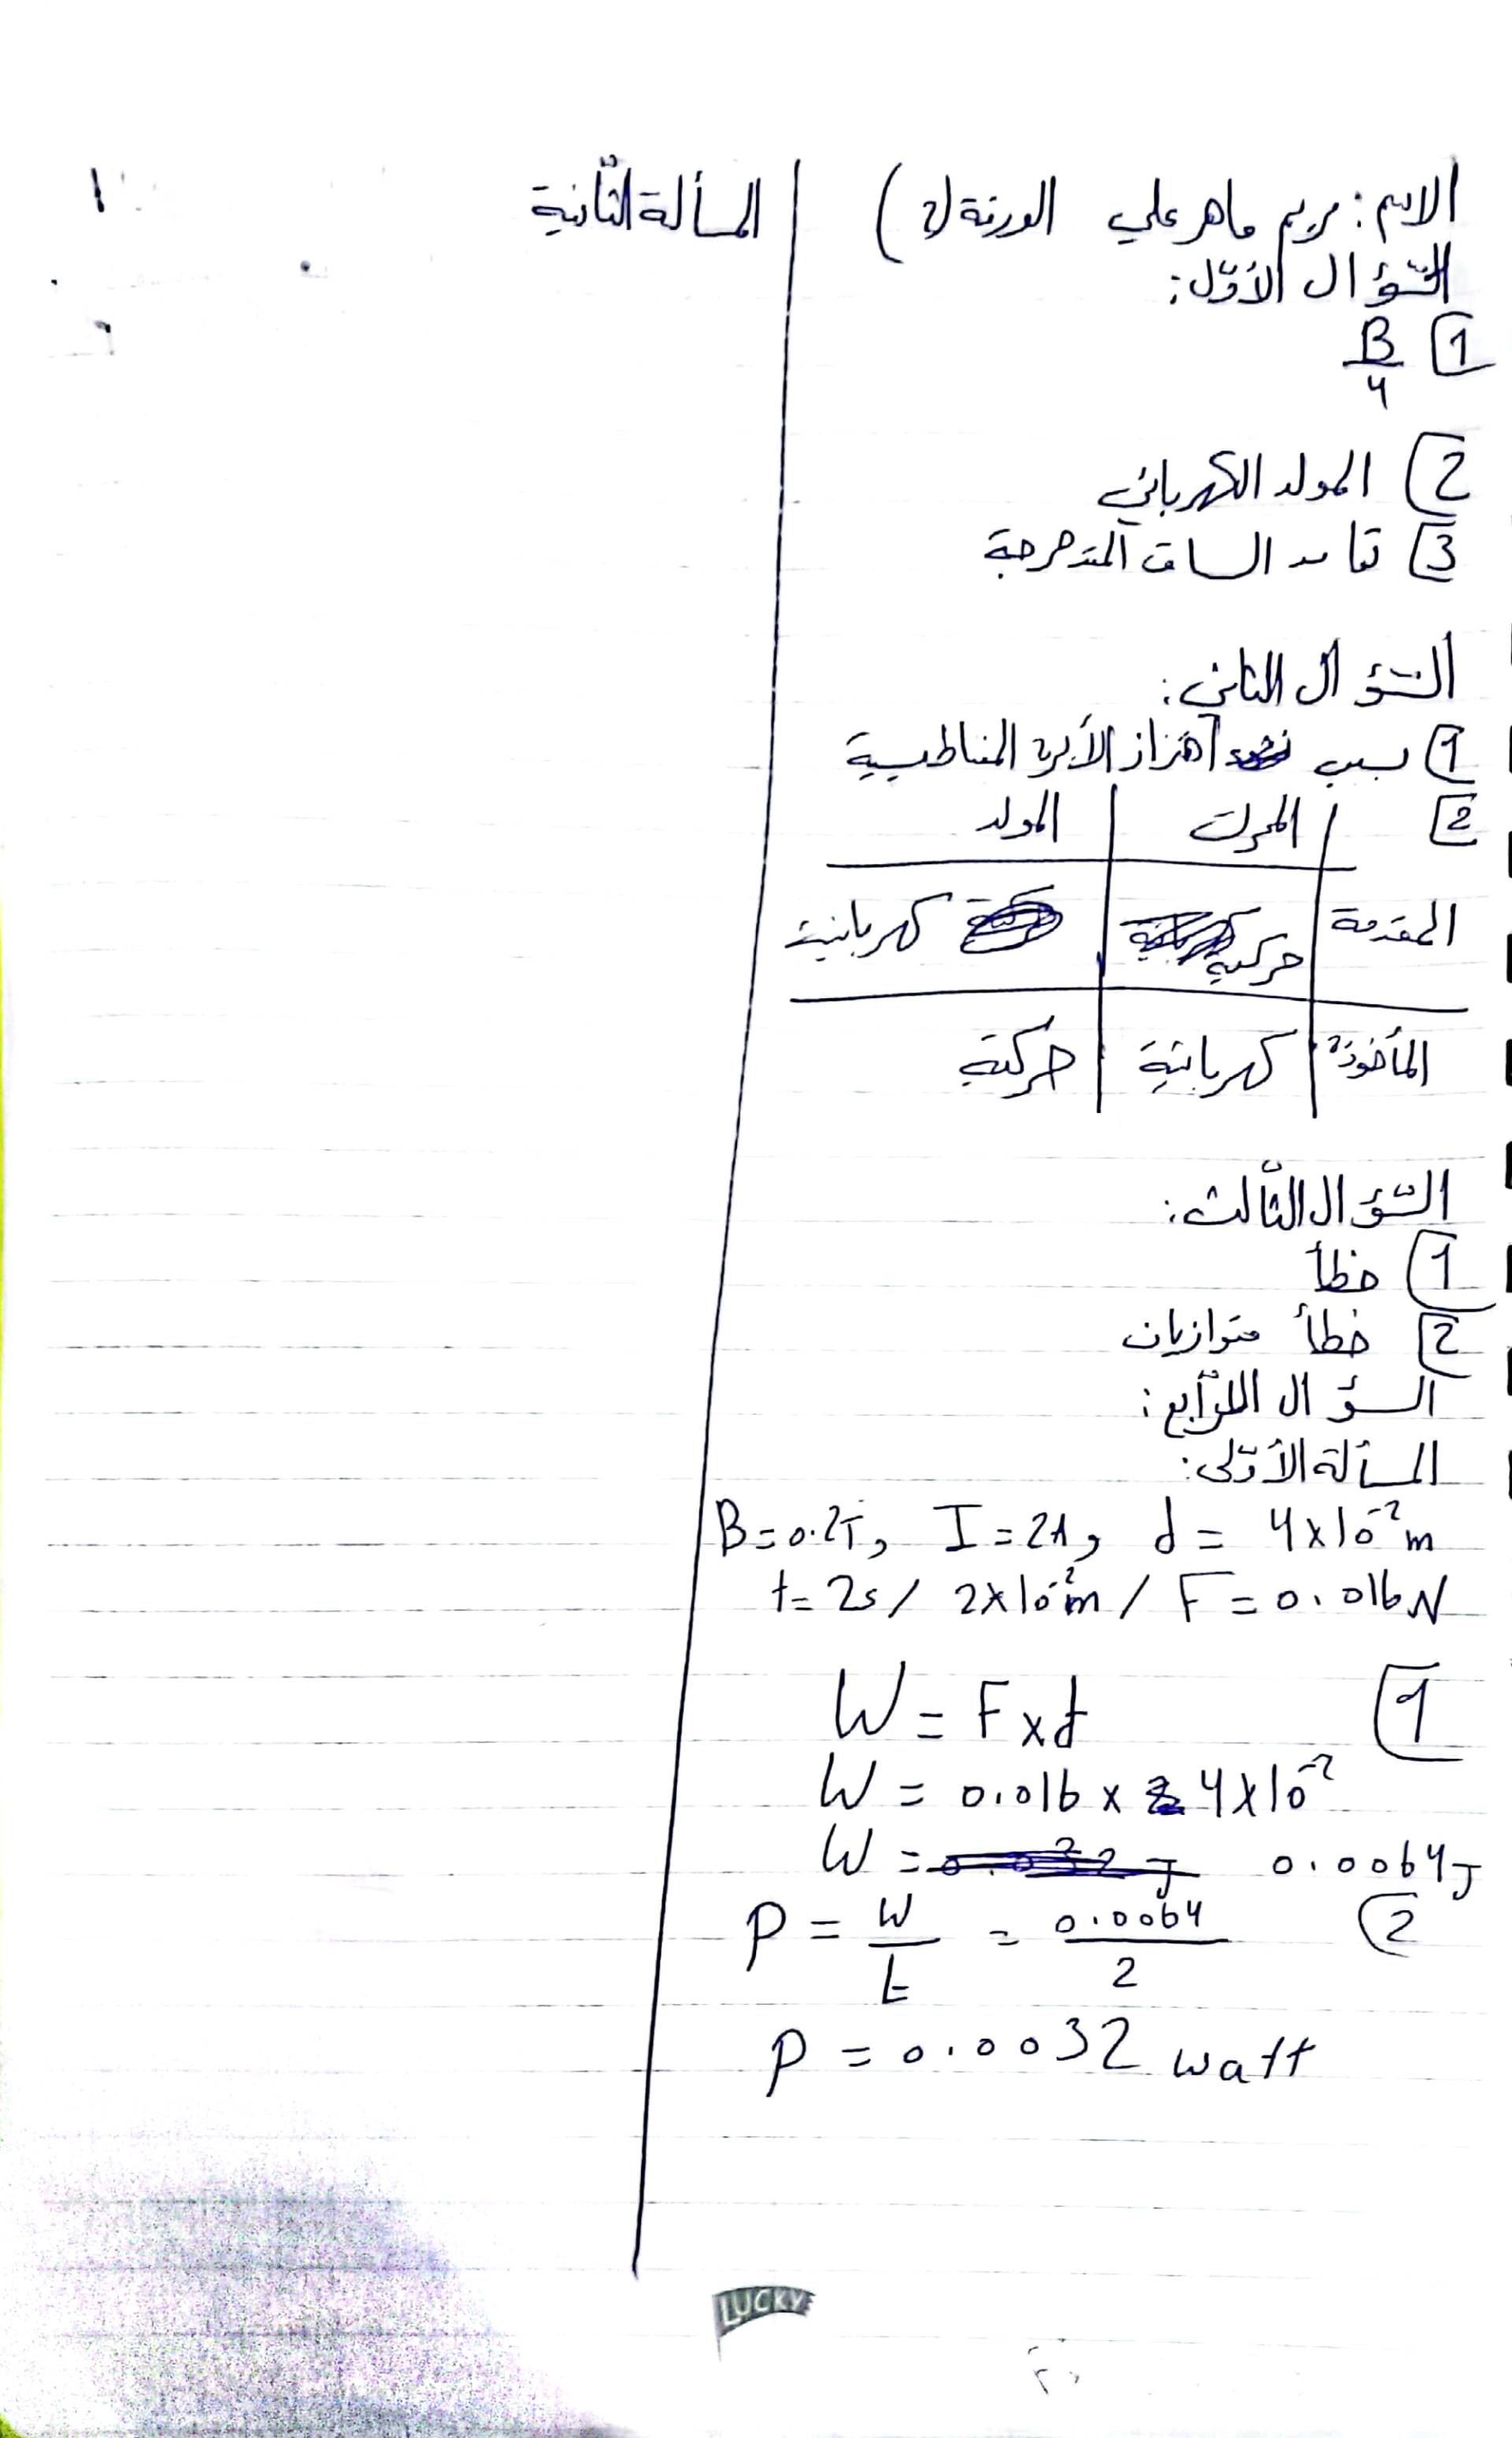 الاسم: مريم ماهر علي الورقة (2)
السّؤال الأوّل:
1 B/4
2 المولد الكهربائي
3 الساق المتدحرجة
السّؤال الثاني:
1 بسبب اهتزاز الأبرة المغناطيسية
2 المحرك المولد
المقدمة حركية كهربائية
المأخوذة كهربائية حركية
السّؤال الثّالث:
1 خطأ
2 خطأ متوازيان
السؤال الرّابع:
المسألة الأوّلى:
B=0.2T, I=2A, d= 4x10⁻²m
t=2s / 2x10⁻²m / F=0.016N
1 W = Fxd
W = 0.016 x 4x10⁻²
W = 0.0064J
2 P = W/t = 0.0064/2
P = 0.0032 watt
المسألة الثّانية
LUCKY